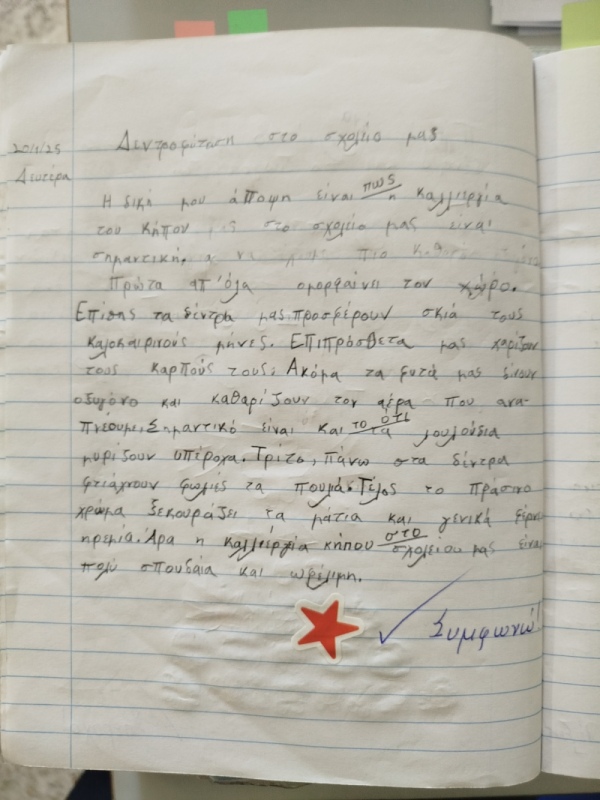 20/1/25
Δευτέρα
Δεντροφύτεση στο σχολείο μας
Η δική μου άποψη είναι πως η καλλιεργία
του κήπου μας στο σχολείο μας είναι
σημαντική. να πιο
Πρώτα απ' όλα ομορφαίνει τον χώρο.
Επίσης τα δέντρα μας προσφέρουν σκιά τους
καλοκαιρικούς μήνες. Επιπρόσθετα μας χαρίζουν
τους καρπούς τους. Ακόμα τα φυτά μας δίνουν
οξυγόνο και καθαρίζουν τον αέρα που ανα-
πνέουμε. Σημαντικό είναι και το ότι τα λουλούδια
μυρίζουν υπέροχα. Τρίτο, πάνω στα δέντρα
φτιάχνουν φωλιές τα πουλιά. Τέλος το πράσινο
χρώμα ξεκουράζει τα μάτια και γενικά φέρνει
ηρεμία. Άρα η καλλιέργια κήπου στο σχολείου μας είναι
πολύ σπουδαία και ωφέλιμη.
Συμφωνώ!